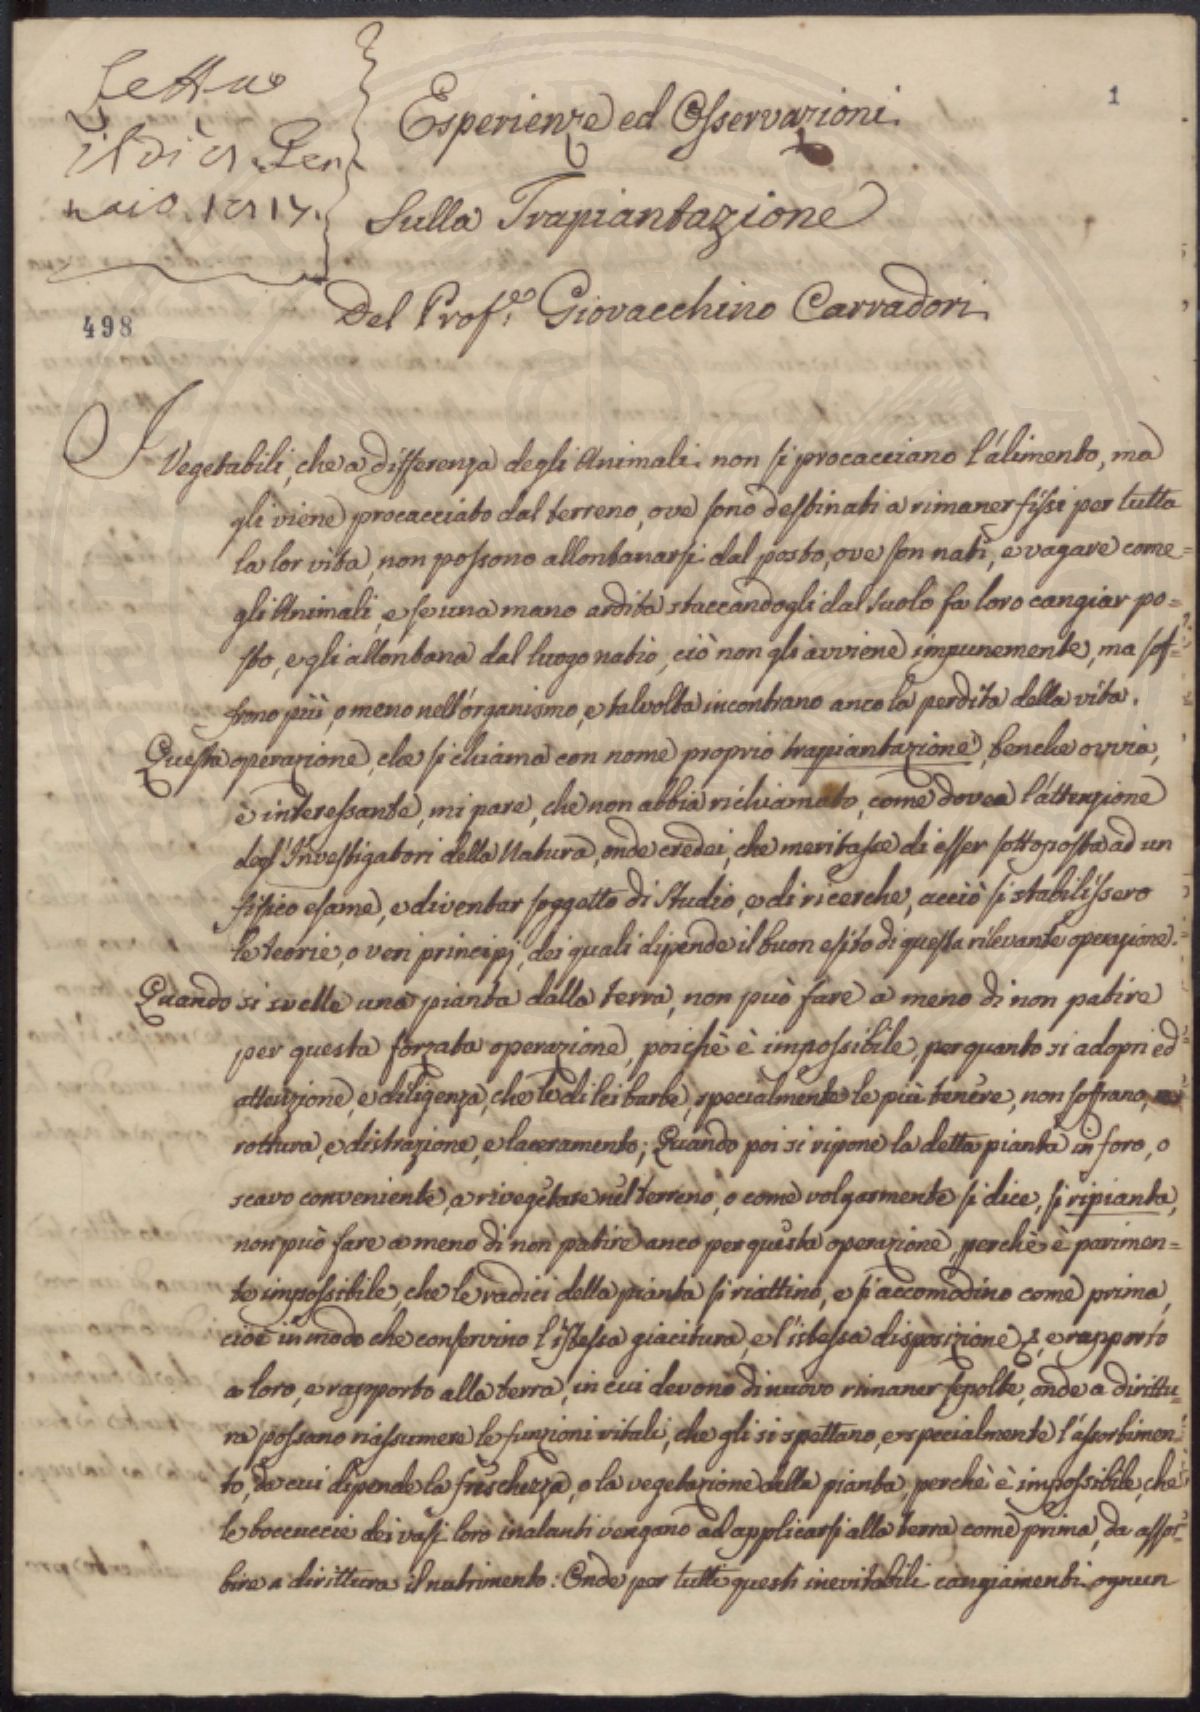 Letta
il dì 12 Gen
naio. 1817.
1
Esperienze ed Osservazioni
Sulla Trapiantazione
Del Prof.e Giovacchino Carradori
498
I Vegetabili, che a differenza degli Animali non si procacciano l'alimento, ma
gli viene procacciato dal terreno, ove sono destinati a rimaner fissi per tutta
la lor vita, non possono allontanarsi dal posto, ove son nati, e vagare come
gli Animali, e se una mano ardita staccandogli dal suolo fa loro cangiar po=
sto, e gli allontana dal luogo natio, ciò non gli avviene impunemente, ma sof=
frono più, o meno nell'organismo, e talvolta incontrano anco la perdita della vita.
Questa operazione, che si chiama con nome proprio trapiantazione, benche ovvia,
è interessante, mi pare, che non abbia richiamato, come dovea l'attenzione
degl'Investigatori della Natura, onde credei, che meritasse di esser sottoposta ad un
fisico esame, e diventar soggetto di Studio, e di ricerche, acciò si stabilissero
le teorie, o veri principj, dei quali dipende il buon esito di questa rilevante operazione.
Quando si svelle una pianta dalla terra, non può fare a meno di non patire
per questa forzata operazione, poichè è impossibile, per quanto si adopri ed
attenzione, e diligenza, che le di lei barbe, specialmente le più tenere, non soffrano,
rottura, e distrazione, e laceramento; Quando poi si ripone la detta pianta in foro, o
scavo conveniente, a rivegetare nel terreno, o come volgarmente si dice, si ripianta,
non può fare a meno di non patire anco per questa operazione, perchè è parimen=
te impossibile, che le radici della pianta si riattino, e s'accomodino come prima,
cioè in modo che conservino l'istessa giacitura, e l'istessa disposizione, e rapporto
a loro, e rapporto alla terra, in cui devono di nuovo rimaner sepolte, onde a dirittu=
ra possano riassumere le funzioni vitali, che gli si spettano, e specialmente l'assorbimen=
to, da cui dipende la freschezza, o la vegetazione della pianta, perchè è impossibile, che
le boccuccie dei vasi loro inalanti vengano ad applicarsi alla terra come prima, da assor=
bire a dirittura il nutrimento: Onde per tutti questi inevitabili cangiamenti ognun